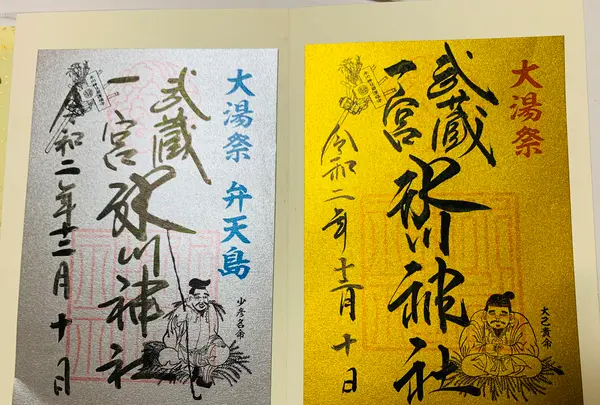 大湯祭
武蔵
一宮
氷川神社
令和二年十二月十日
大己貴命
大湯祭 弁天島
武蔵
一宮
氷川神社
令和二年十二月十日
少彦名命